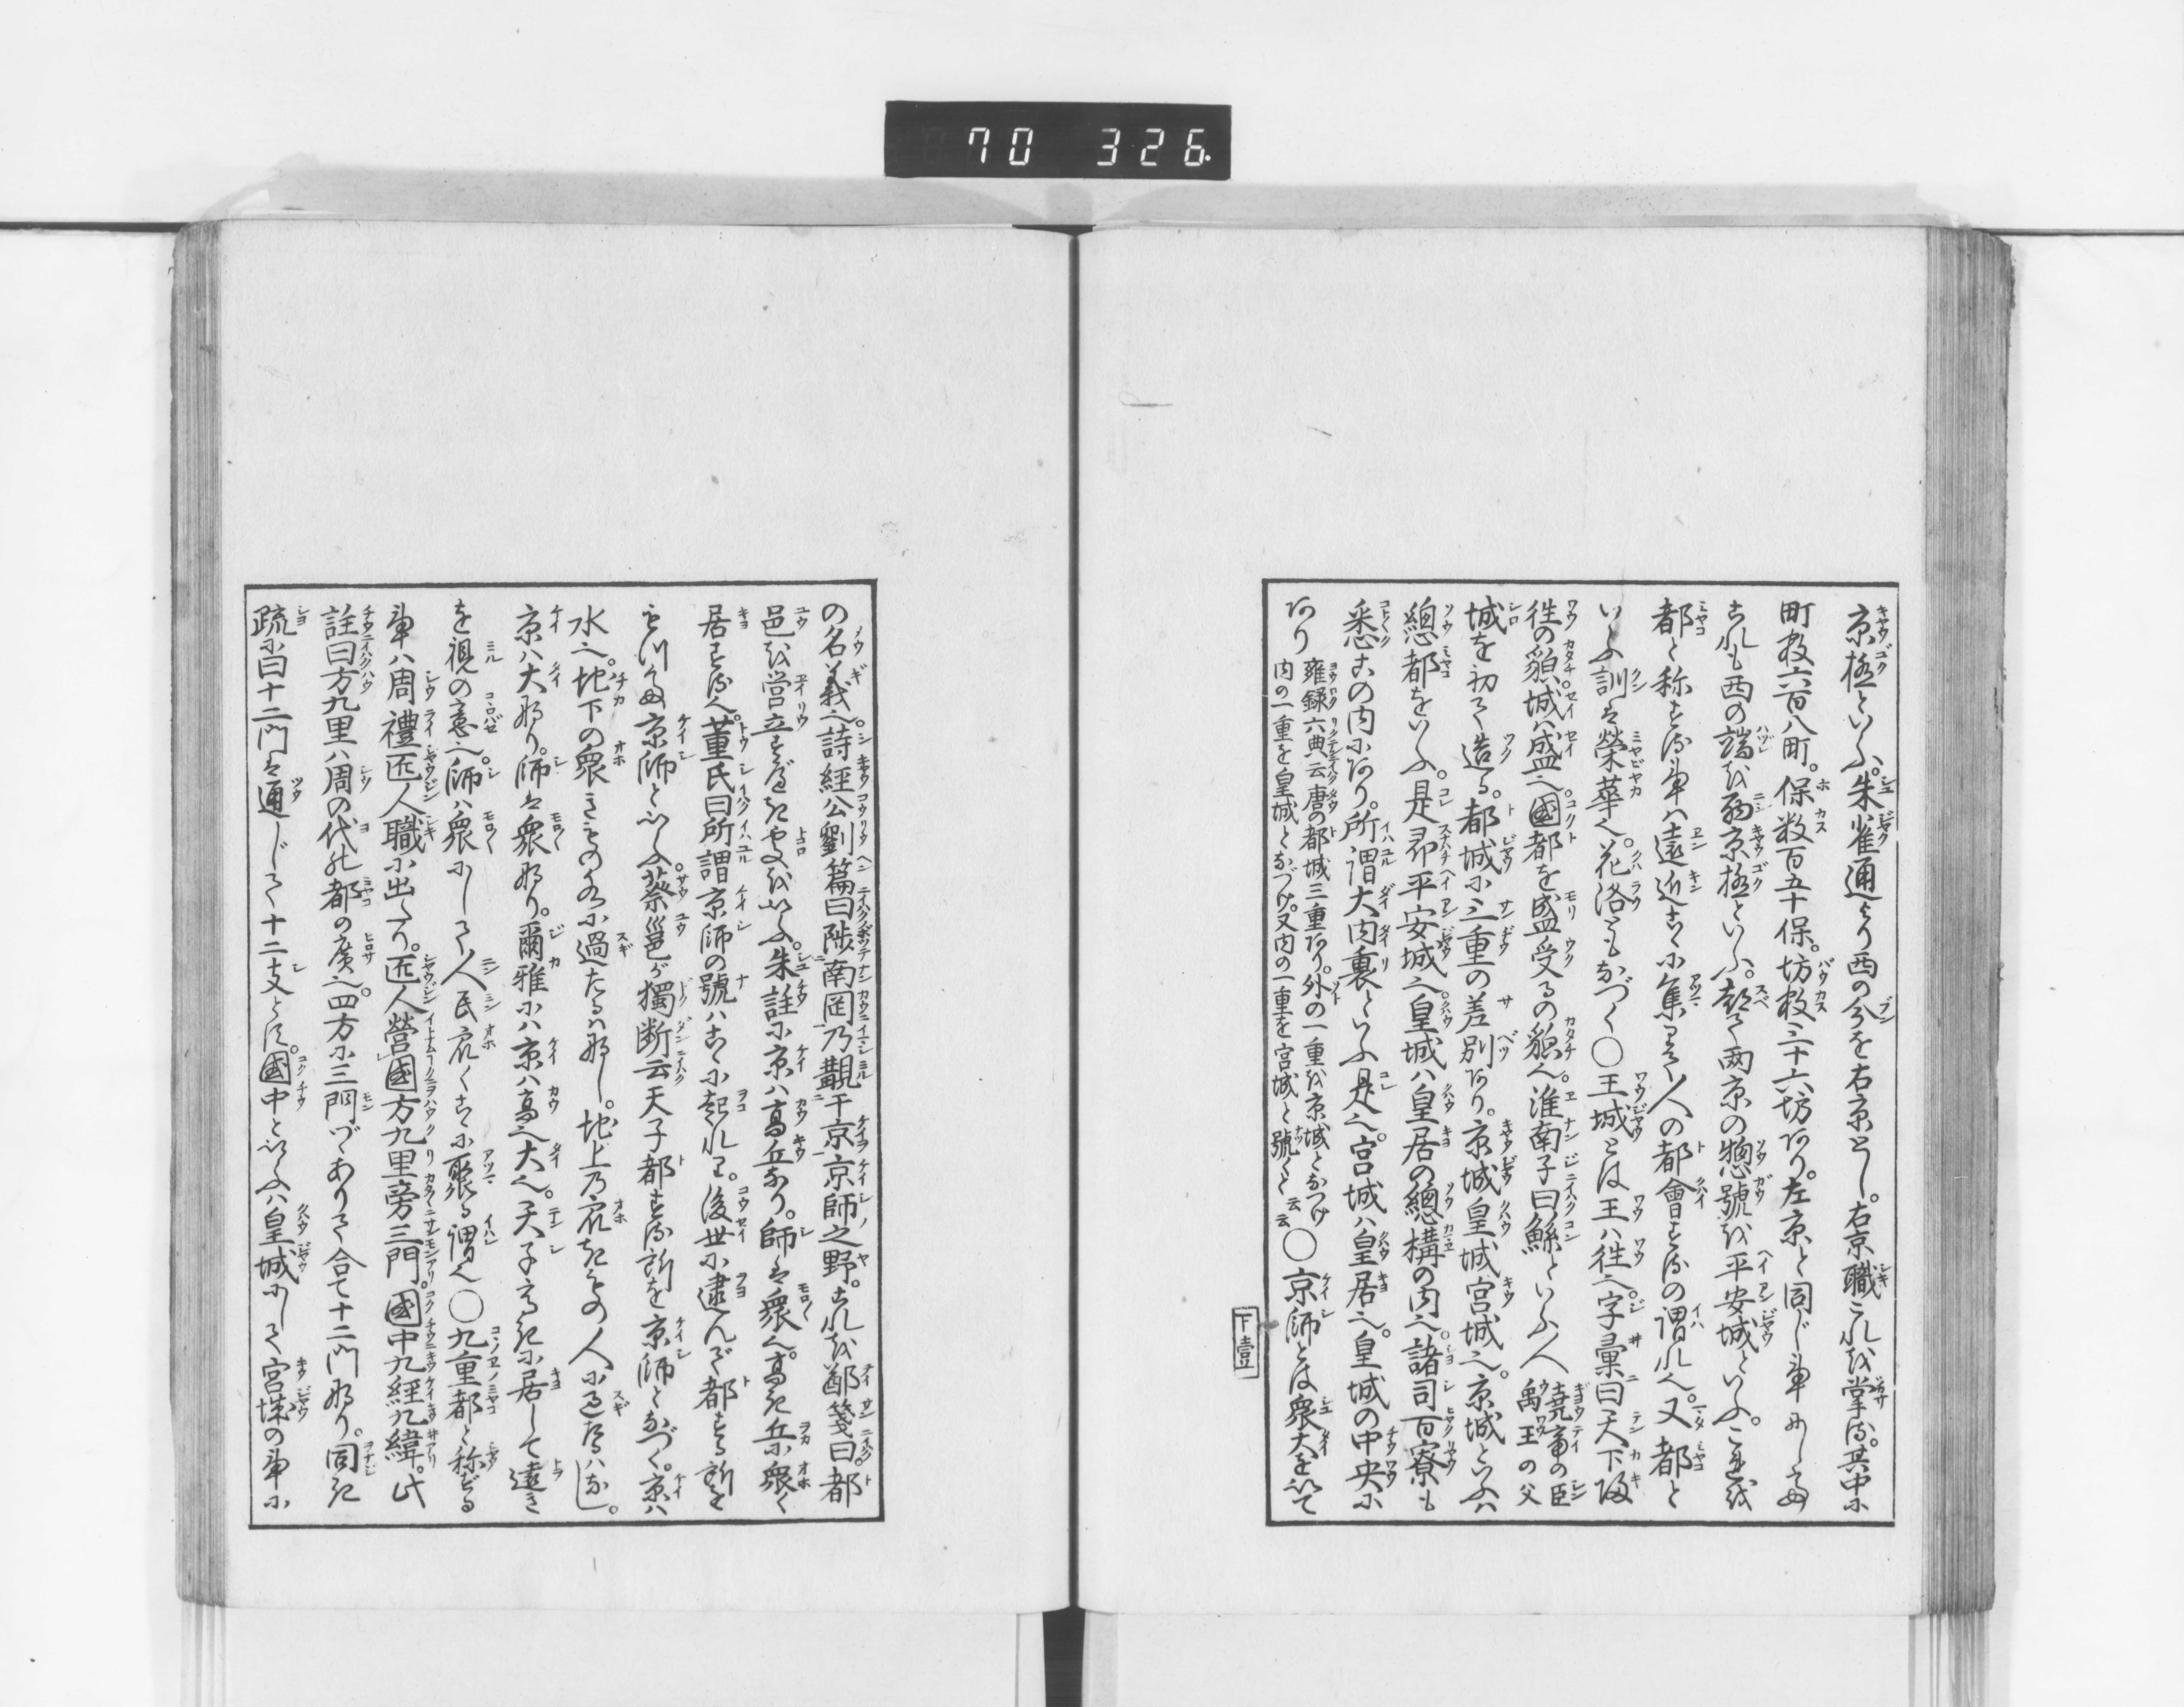 70 326.
京極といふ。朱雀通より西の分を右京とし。右京職これを掌る。其中に
町数六百八町。保数百五十保。坊数三十六坊あり。左京と同じ事にして
これも西の端を西京極といふ。都て両京の惣號を平安城といふ。これを
都と称する事は遠近こゝに集りて人の都會するの謂れ也。又都と
いふ訓は榮華也。花洛ともなづく〇王城とは王ハ徃也。字彙曰天下歸
徃の貌城ハ盛也。國都を盛受るの貌也。淮南子曰鯀といふ人堯帝の臣禹王の父
城を初て造る。都城に三重の差別あり。京城皇城宮城也。京城といふハ
總都をいふ。是即平安城也。皇城ハ皇居の總構の内也。諸司百寮も
悉この内にあり。所謂大内裏といふ是也。宮城ハ皇居也。皇城の中央に
あり雍録六典云唐の都城三重あり。外の一重を京城となづけ
内の一重を皇城となづけ。又内の一重を宮城と號くと云云〇京師とは衆大を以て
下壹
の名義也。詩經公劉篇曰陟南岡乃覯于京京師之野。これを鄭箋曰。都
邑を営立すべき処を以ふ。朱註に京ハ高丘なり。師は衆也。高き丘に衆く
居する也。董氏曰所謂京師の號ハこゝに起れり。後世に逮んで都する所を
京師といふ。蔡邕が獨断云天子都する所を京師となづく。京ハ
水也。地下の衆きもの水に過たるハなし。地上の衆きもの人に過たるハなし。
京ハ大なり。師は衆なり。爾雅にハ京ハ高也大也。天子高きに居して遠き
を視の意也。師ハ衆にして人民衆くこゝに聚る謂也〇九重都と称ずる
事ハ周禮匠人職に出たり。匠人營國方九里旁三門。國中九經九緯。此
註曰方九里ハ周の代の都の廣也。四方に三門づゝありて合て十二門なり。同き
疏に曰十二門は通じて十二支とす。國中といふハ皇城にして宮城の事に